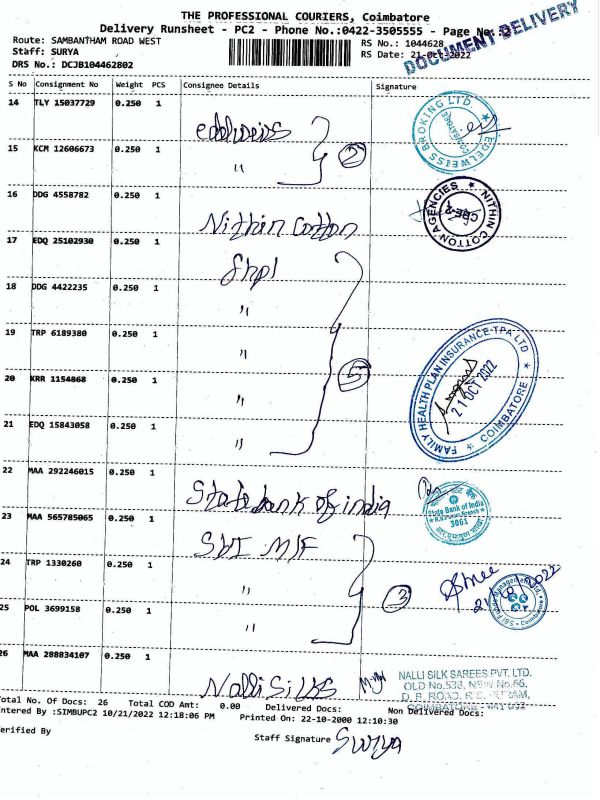 THE PROFESSIONAL COURIERS, Coimbatore
Delivery Runsheet - PC2 - Phone No.:0422-3505555 - Page No.:2
DOCUMENT DELIVERY
Route: SAMBANTHAM ROAD WEST
RS No.: 1044628
Staff: SURYA
RS Date: 21-Oct-2022
DRS No.: DCJB104462802
S No Consignment No Weight PCS Consignee Details Signature
14 TLY 15037729 0.250 1
edelweiss
EDELWEISS BROKING LTD.
COIMBATORE
15 KCM 12606673 0.250 1
"
2
16 DDG 4558782 0.250 1
Nithin Cotton
NITHIN COTTON AGENCIES
CBE-2
17 EDQ 25102930 0.250 1
fhpl
18 DDG 4422235 0.250 1
"
19 TRP 6189380 0.250 1
"
5
FAMILY HEALTH PLAN INSURANCE TPA LTD
21 OCT 2022
COIMBATORE
20 KRR 1154868 0.250 1
"
21 EDQ 15843058 0.250 1
"
22 MAA 292246015 0.250 1
State bank of india
State Bank of India
3061
23 MAA 565785065 0.250 1
SBI M/F
24 TRP 1330260 0.250 1
"
3
25 POL 3699158 0.250 1
"
26 MAA 288834107 0.250 1
Nalli Silks
NALLI SILK SAREES PVT. LTD.
OLD No.538, NEW No.66,
D. B. ROAD, R.S. PURAM,
COIMBATORE - 641 002
Total No. Of Docs: 26 Total COD Amt: 0.00 Delivered Docs: Non Delivered Docs:
Entered By :SIMBUPC2 10/21/2022 12:18:06 PM Printed On: 22-10-2000 12:10:30
Verified By
Staff Signature Surya